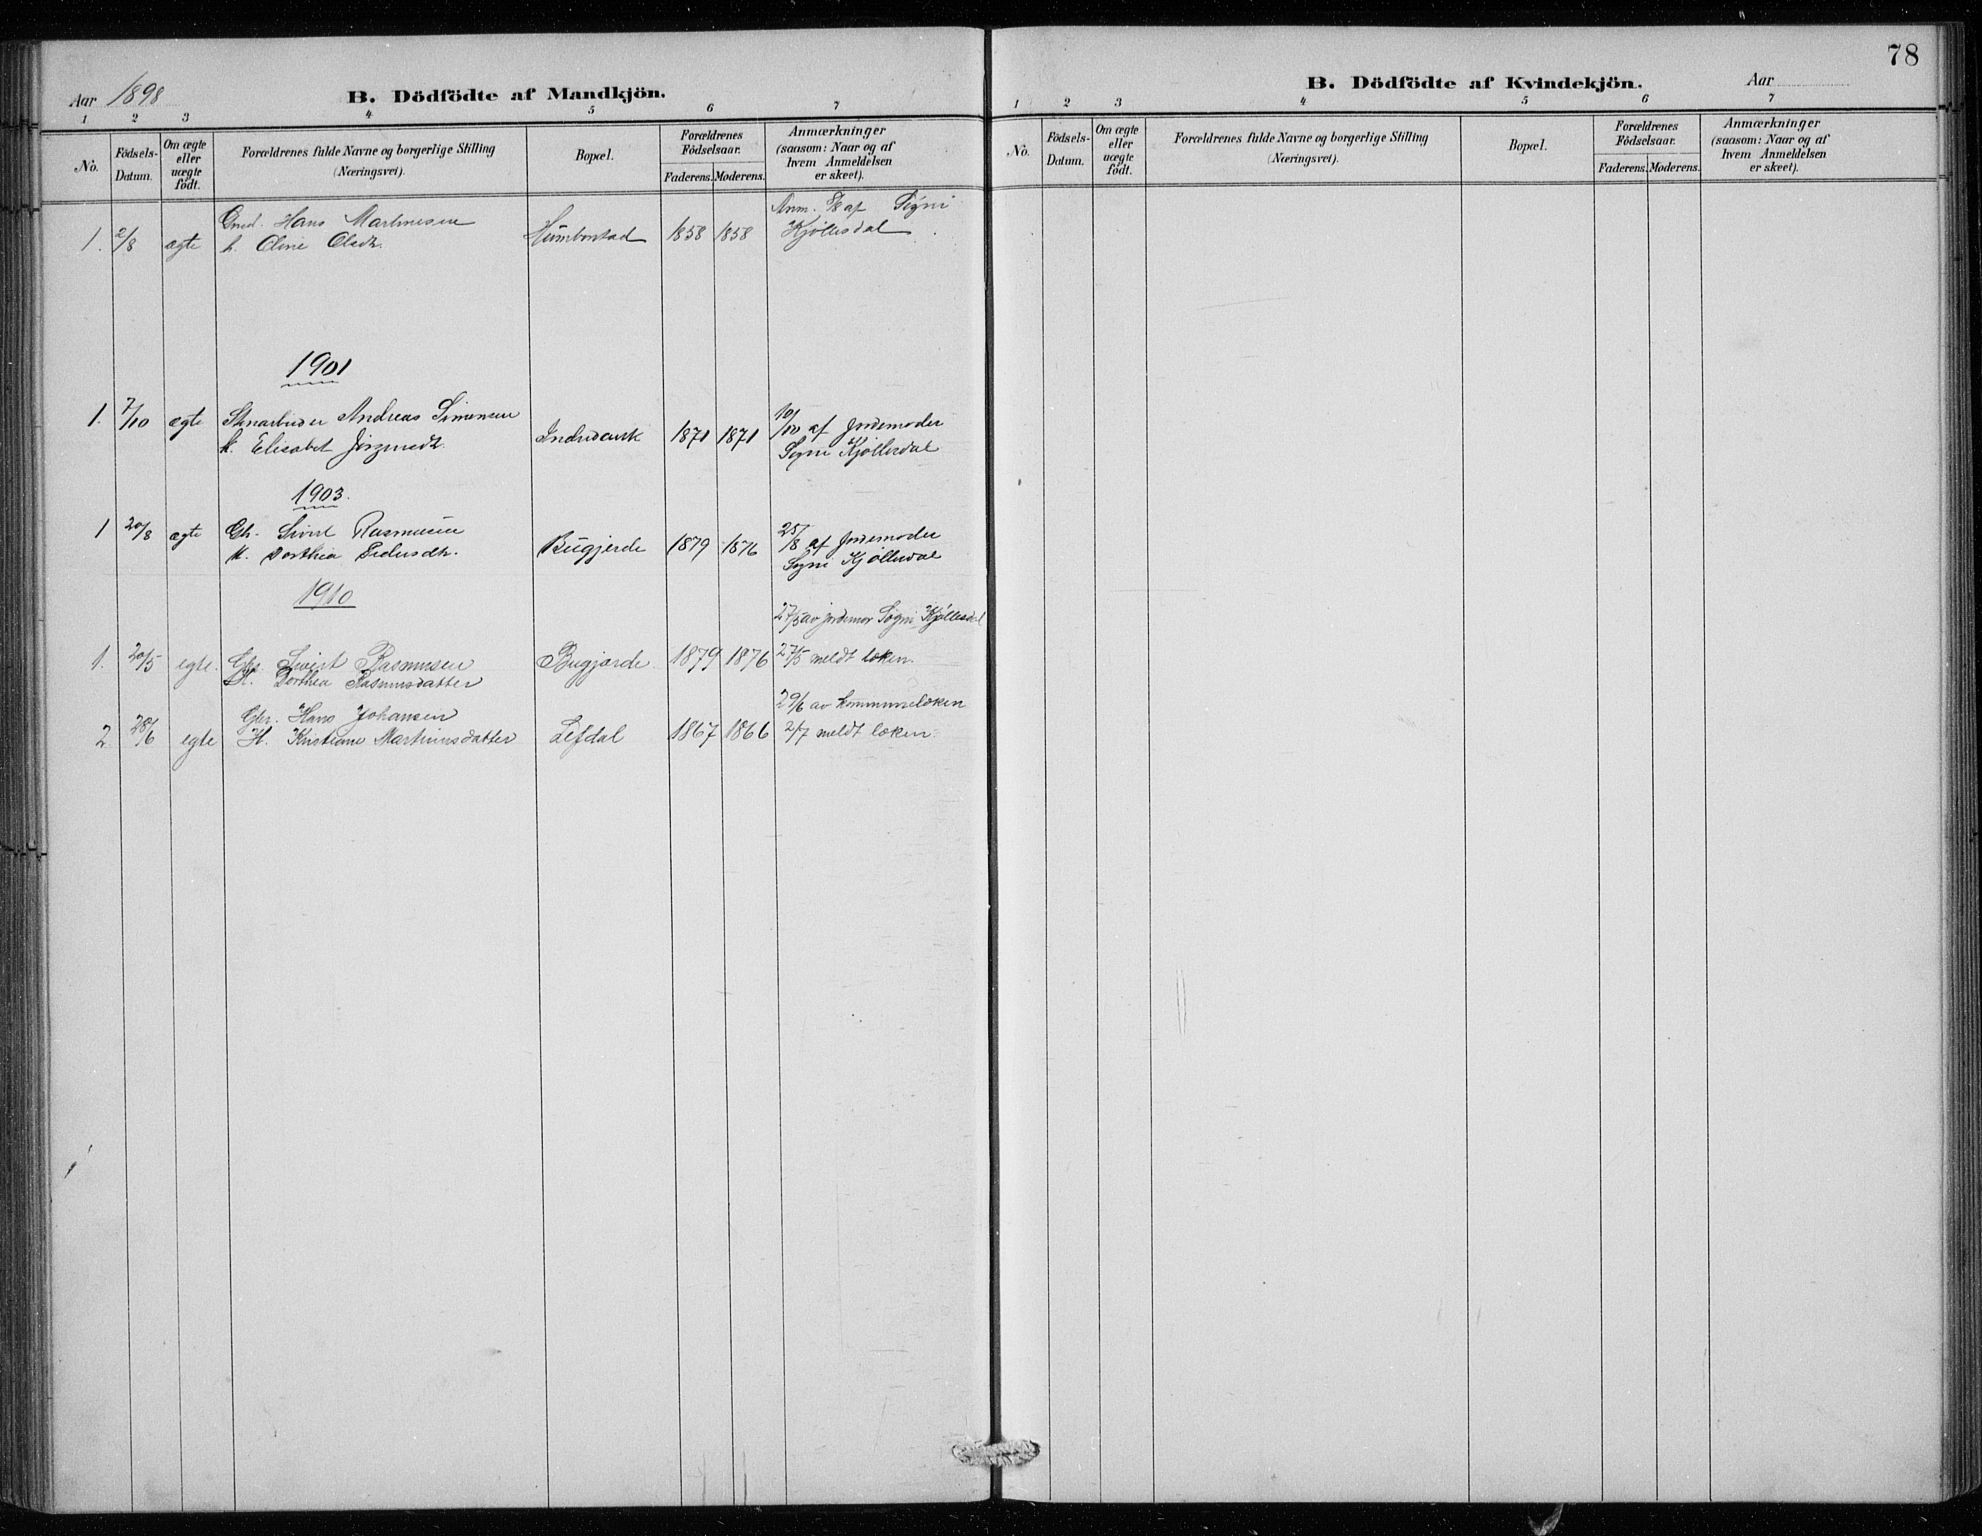 78
Aar 1898
B. Dödfödte af Mandkjön.
1 2 3 4 5 6 7
No.
Födsels-Datum.
Om ægte eller uægte født.
Forældrenes fulde Navne og borgerlige Stilling
(Næringsvei).
Bopæl.
Forældrenes Födselsaar.
Faderens. Moderens.
Anmærkninger
(saasom: Naar og af
hvem Anmeldelsen
er skeet).
1. 2/8 ægte Gmd. Hans Martinesen Humborstad 1858 1858 Anm. af Signi
h. Oline Olsdtr. Kjøllesdal
1901
1. 7/10 ægte Stenarbeider Andreas Simensen 1871 1871 10/10 af Jordemoder
H. Elisabet Signi Kjøllesdal
1903.
1 20/8 ægte Gbr. Sivert Rasmusen Bugjerde 1879 1876 25/8 af Jordemoder
H. Dorthea Signi Kjøllesdal
1910
27/5 av jordemor Signi Kjøllesdal
1. 20/5 egte. Gbr. Sivert Rasmusen Bugjærde 1879 1876 27/5 meldt læken.
H. Dorthea Rasmusdatter
29/6 av kommunelæken
2 28/6 egte Gbr. Hans Johansen Lefdal 1867 1866 2/7 meldt læken.
H. Kristiane Martinusdatter
B. Dödfödte af Kvindekjön.
Aar
1 2 3 4 5 6 7
No.
Födsels-Datum.
Om ægte eller uægte födt.
Forældrenes fulde Navne og borgerlige Stilling
(Næringsvei).
Bopæl.
Forældrenes Födselsaar.
Faderens. Moderens.
Anmærkninger
(saasom: Naar og af
hvem Anmeldelsen
er skeet).